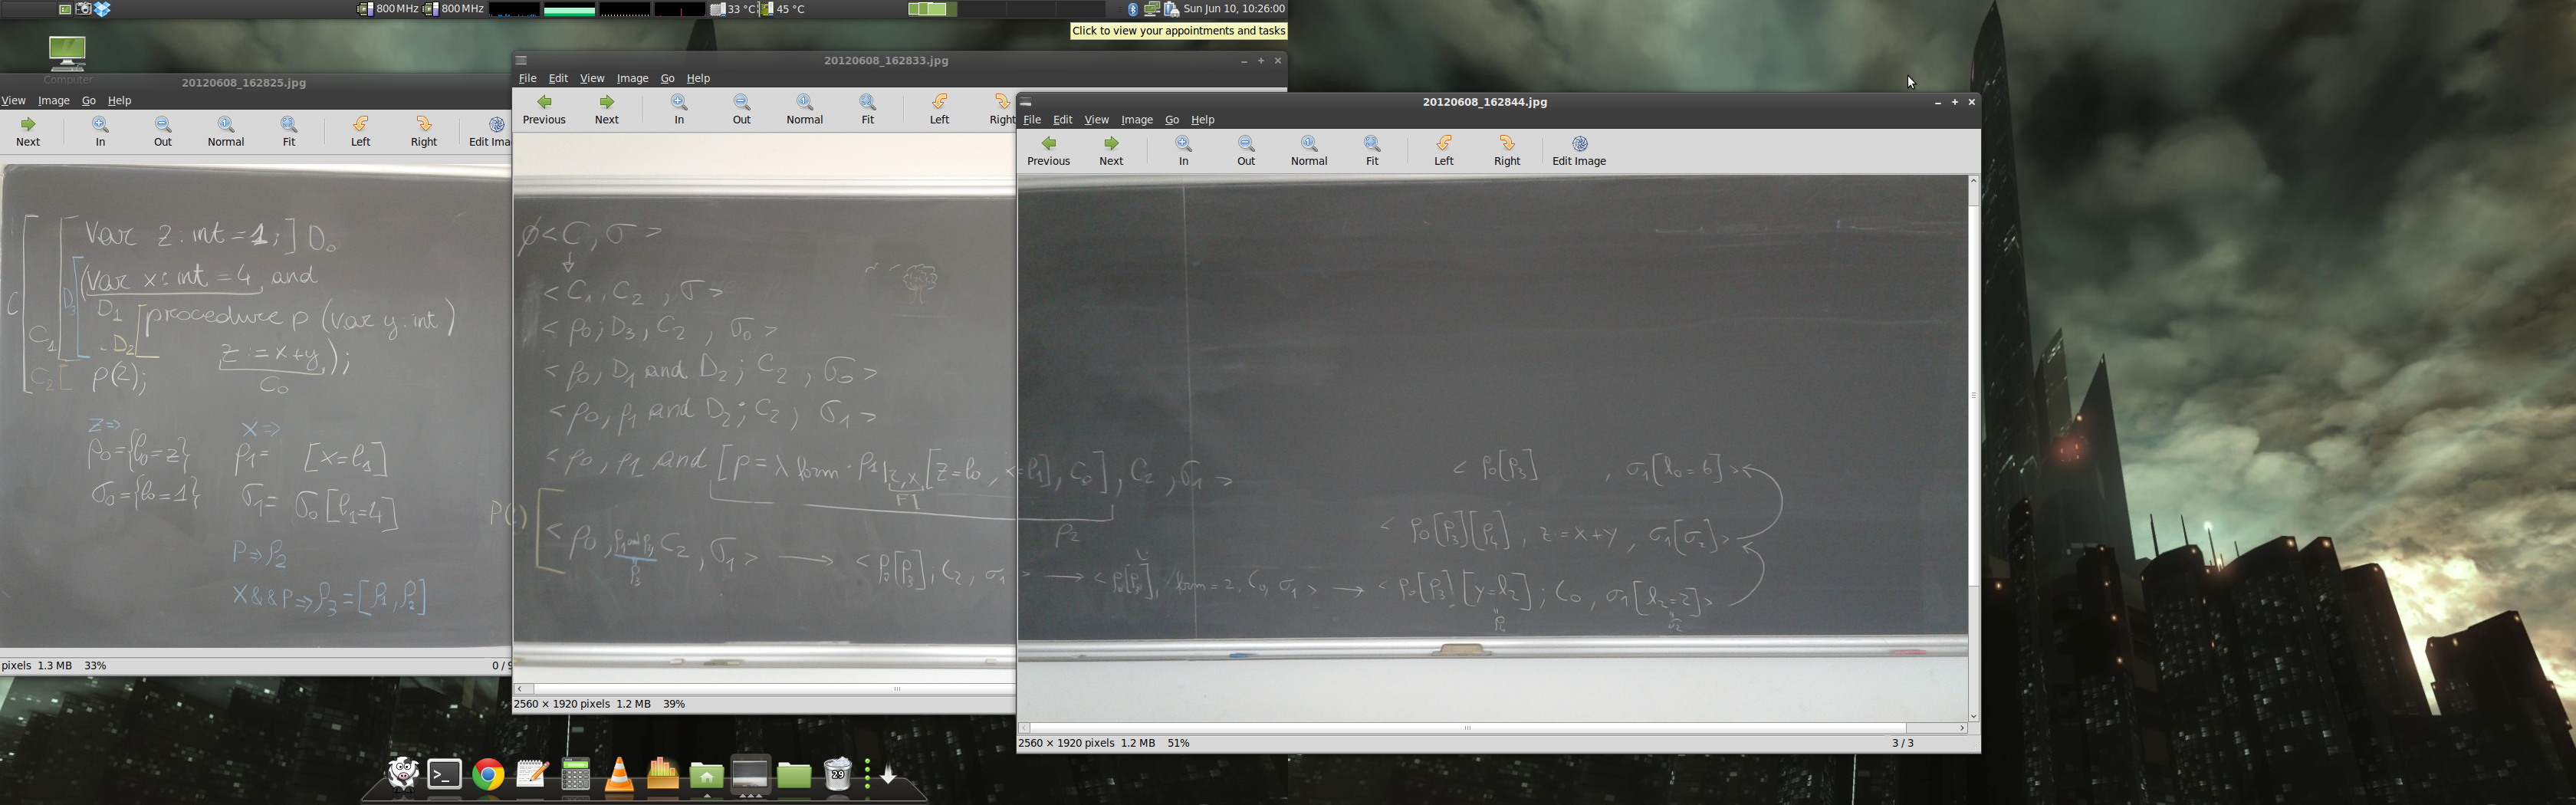 800 MHz 800 MHz 33 °C 45 °C Sun Jun 10, 10:26:00
Click to view your appointments and tasks
Computer
20120608_162825.jpg
View Image Go Help
Next In Out Normal Fit Left Right Edit Ima
Var z : int = 1; ] D₀
(Var x : int = 4 and
D₃ D₁ [procedure p (Var y : int)
C C₁ D₂ z := x+y);
C₂ [ p(2); C₀
z ⇒ x ⇒
ρ₀ = {l₀ = z} ρ₁ = [x = l₁]
σ₀ = {l₀ = 1} σ₁ = σ₀ [l₁ = 4]
P ⇒ ρ₂
X && P ⇒ ρ₃ = [ρ₁, ρ₂]
pixels 1.3 MB 33% 0 / 9
20120608_162833.jpg
File Edit View Image Go Help
Previous Next In Out Normal Fit Left Right
∅ < C, σ >
↓
< C₁, C₂ , σ >
< ρ₀; D₃, C₂ , σ₀ >
< ρ₀, D₁ and D₂; C₂ , σ₀ >
< ρ₀, ρ₁ and D₂; C₂, σ₁ >
< ρ₀, ρ₁ and [p = λ form · ρ₁|z,x [z = l₀,
FI
P( )
< ρ₀, C₂, σ₁ > → < ρ₀[ρ₃]; C₂, σ₁
ρ₃
2560 × 1920 pixels 1.2 MB 39%
20120608_162844.jpg
File Edit View Image Go Help
Previous Next In Out Normal Fit Left Right Edit Image
= l₁], C₀], C₂, σ₁ >
ρ₂
< ρ₀[ρ₃] , σ₁[l₀ = 6] >
< ρ₀[ρ₃][ρ₄], z = x + y, σ₁[σ₂] >
→ < ρ₀[ρ₃], form = 2, C₀, σ₁ > → < ρ₀[ρ₃] [y = l₂]; C₀, σ₁[l₂ = 2] >
ρ₄ σ₂
2560 × 1920 pixels 1.2 MB 51% 3 / 3
29